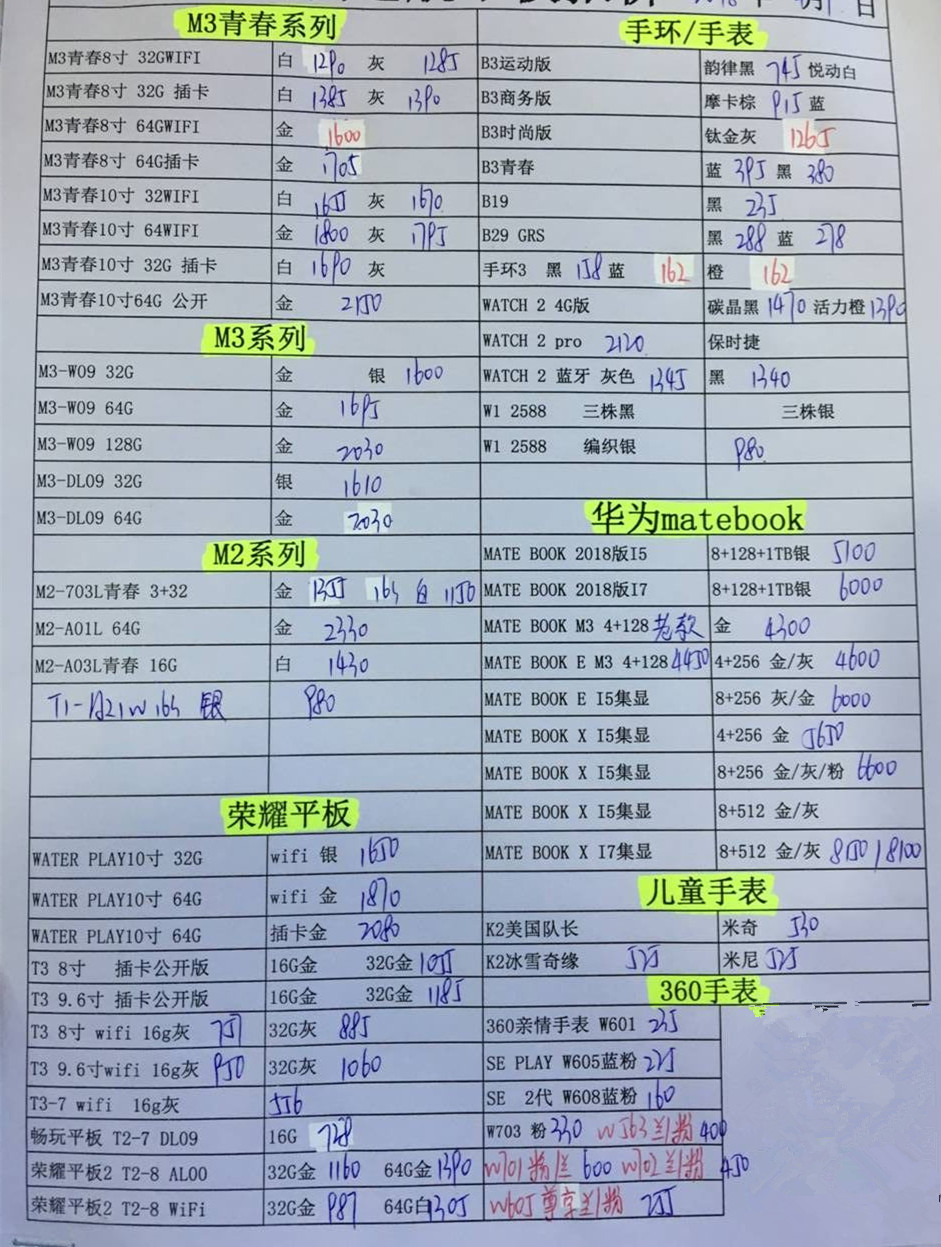 M3青春系列
M3青春8寸 32GWIFI 白 1290 灰 1285
M3青春8寸 32G 插卡 白 1385 灰 1390
M3青春8寸 64GWIFI 金 1600
M3青春8寸 64G插卡 金 1705
M3青春10寸 32WIFI 白 1655 灰 1670
M3青春10寸 64WIFI 金 1800 灰 1795
M3青春10寸 32G 插卡 白 1690 灰
M3青春10寸64G 公开 金 2150
M3系列
M3-W09 32G 金 银 1600
M3-W09 64G 金 1695
M3-W09 128G 金 2030
M3-DL09 32G 银 1610
M3-DL09 64G 金 2030
M2系列
M2-703L青春 3+32 金 1355 16G 白 1150
M2-A01L 64G 金 2330
M2-A03L青春 16G 白 1430
T1-A21W 16G 银 980
荣耀平板
WATER PLAY10寸 32G wifi 银 1650
WATER PLAY10寸 64G wifi 金 1870
WATER PLAY10寸 64G 插卡金 2080
T3 8寸 插卡公开版 16G金 32G金 1055
T3 9.6寸 插卡公开版 16G金 32G金 1185
T3 8寸 wifi 16g灰 32G灰 885
T3 9.6寸wifi 16g灰 950 32G灰 1060
T3-7 wifi 16g灰 556
畅玩平板 T2-7 DL09 16G 728
荣耀平板2 T2-8 AL00 32G金 1160 64G金 1390
荣耀平板2 T2-8 WiFi 32G金 987 64G白 1305
手环/手表
B3运动版 韵律黑 745 悦动白
B3商务版 摩卡棕 915 蓝
B3时尚版 钛金灰 1265
B3青春 蓝 395 黑 380
B19 黑 235
B29 GRS 黑 288 蓝 278
手环3 黑 158 蓝 162 橙 162
WATCH 2 4G版 碳晶黑 1470 活力橙 1390
WATCH 2 pro 2120 保时捷
WATCH 2 蓝牙 灰色 1345 黑 1340
W1 2588 三株黑 三株银
W1 2588 编织银 980
华为matebook
MATE BOOK 2018版I5 8+128+1TB银 5100
MATE BOOK 2018版I7 8+128+1TB银 6000
MATE BOOK M3 4+128 老款 金 4300
MATE BOOK E M3 4+128 4450 4+256 金/灰 4600
MATE BOOK E I5集显 8+256 灰/金 6000
MATE BOOK X I5集显 4+256 金 5650
MATE BOOK X I5集显 8+256 金/灰/粉 6600
MATE BOOK X I5集显 8+512 金/灰
MATE BOOK X I7集显 8+512 金/灰 8150 / 8100
儿童手表
K2美国队长 米奇 530
K2冰雪奇缘 525 米尼 525
360手表
360亲情手表 W601 235
SE PLAY W605蓝粉 225
SE 2代 W608蓝粉 160
W703 粉 330 W563 兰/粉 400
W701 粉/兰 600 W702 兰/粉 450
W605 尊享兰/粉 255